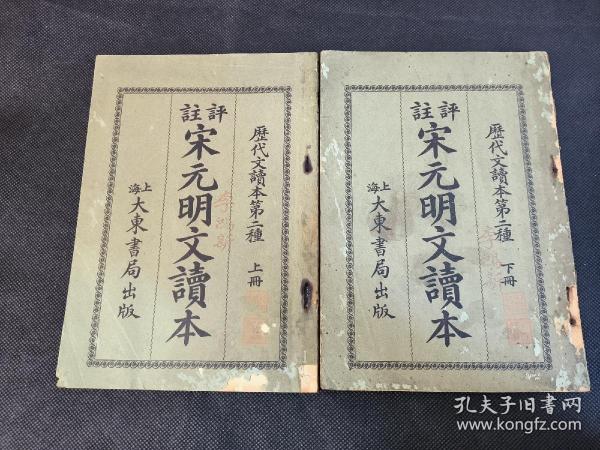 歷代文讀本第二種 上冊
評註 宋元明文讀本
上海 大東書局出版
歷代文讀本第二種 下冊
評註 宋元明文讀本
上海 大東書局出版
孔夫子旧书网
www.kongfz.com